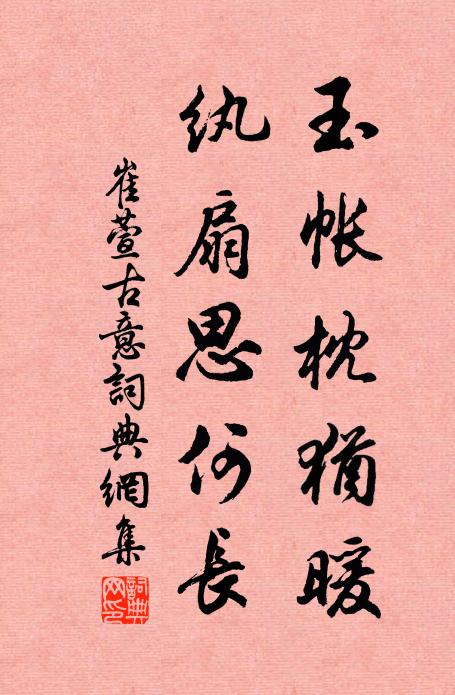 玉帐枕犹暖
纨扇思何長
崔萱古意詞典網集
詞典网印